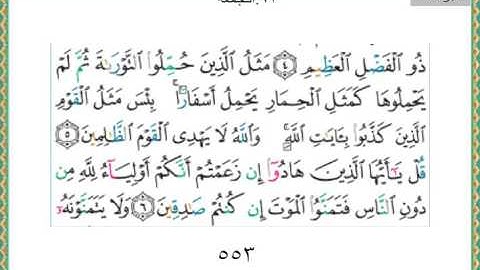 ذُو الْفَضْلِ الْعَظِيمِ ﴿٤﴾ مَثَلُ الَّذِينَ حُمِّلُوا التَّوْرَىٰةَ ثُمَّ لَمْ
يَحْمِلُوهَا كَمَثَلِ الْحِمَارِ يَحْمِلُ أَسْفَارًا ۚ بِئْسَ مَثَلُ الْقَوْمِ
الَّذِينَ كَذَّبُوا بِـَٔايَاتِ اللَّهِ ۚ وَاللَّهُ لَا يَهْدِى الْقَوْمَ الظَّالِمِينَ ﴿٥﴾
قُلْ يَـٰٓأَيُّهَا الَّذِينَ هَادُوٓا إِن زَعَمْتُمْ أَنَّكُمْ أَوْلِيَآءُ لِلَّهِ مِن
دُونِ النَّاسِ فَتَمَنَّوُا الْمَوْتَ إِن كُنتُمْ صَـٰدِقِينَ ﴿٦﴾ وَلَا يَتَمَنَّوْنَهُۥٓ
٥٥٣